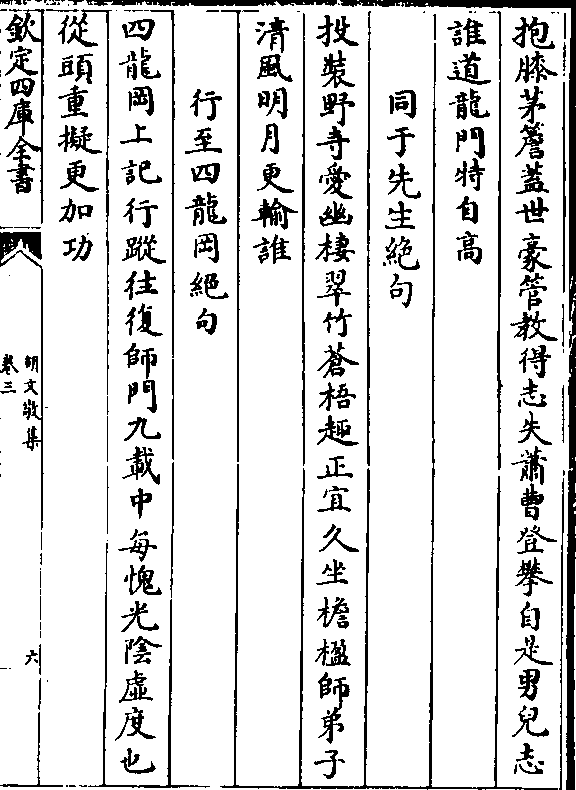 抱膝茅簷蓋世豪管教得志失蕭曹登攀自是男兒志
誰道龍門特自高
同于先生絕句
投裝野寺愛幽棲翠竹蒼梧趣正宜久坐檐楹師弟子
清風明月更輸誰
行至四龍岡絕句
四龍岡上記行蹤往復師門九載中每愧光陰虛度也
從頭重擬更加功
欽定四庫全書
胡文敬集
卷三
六